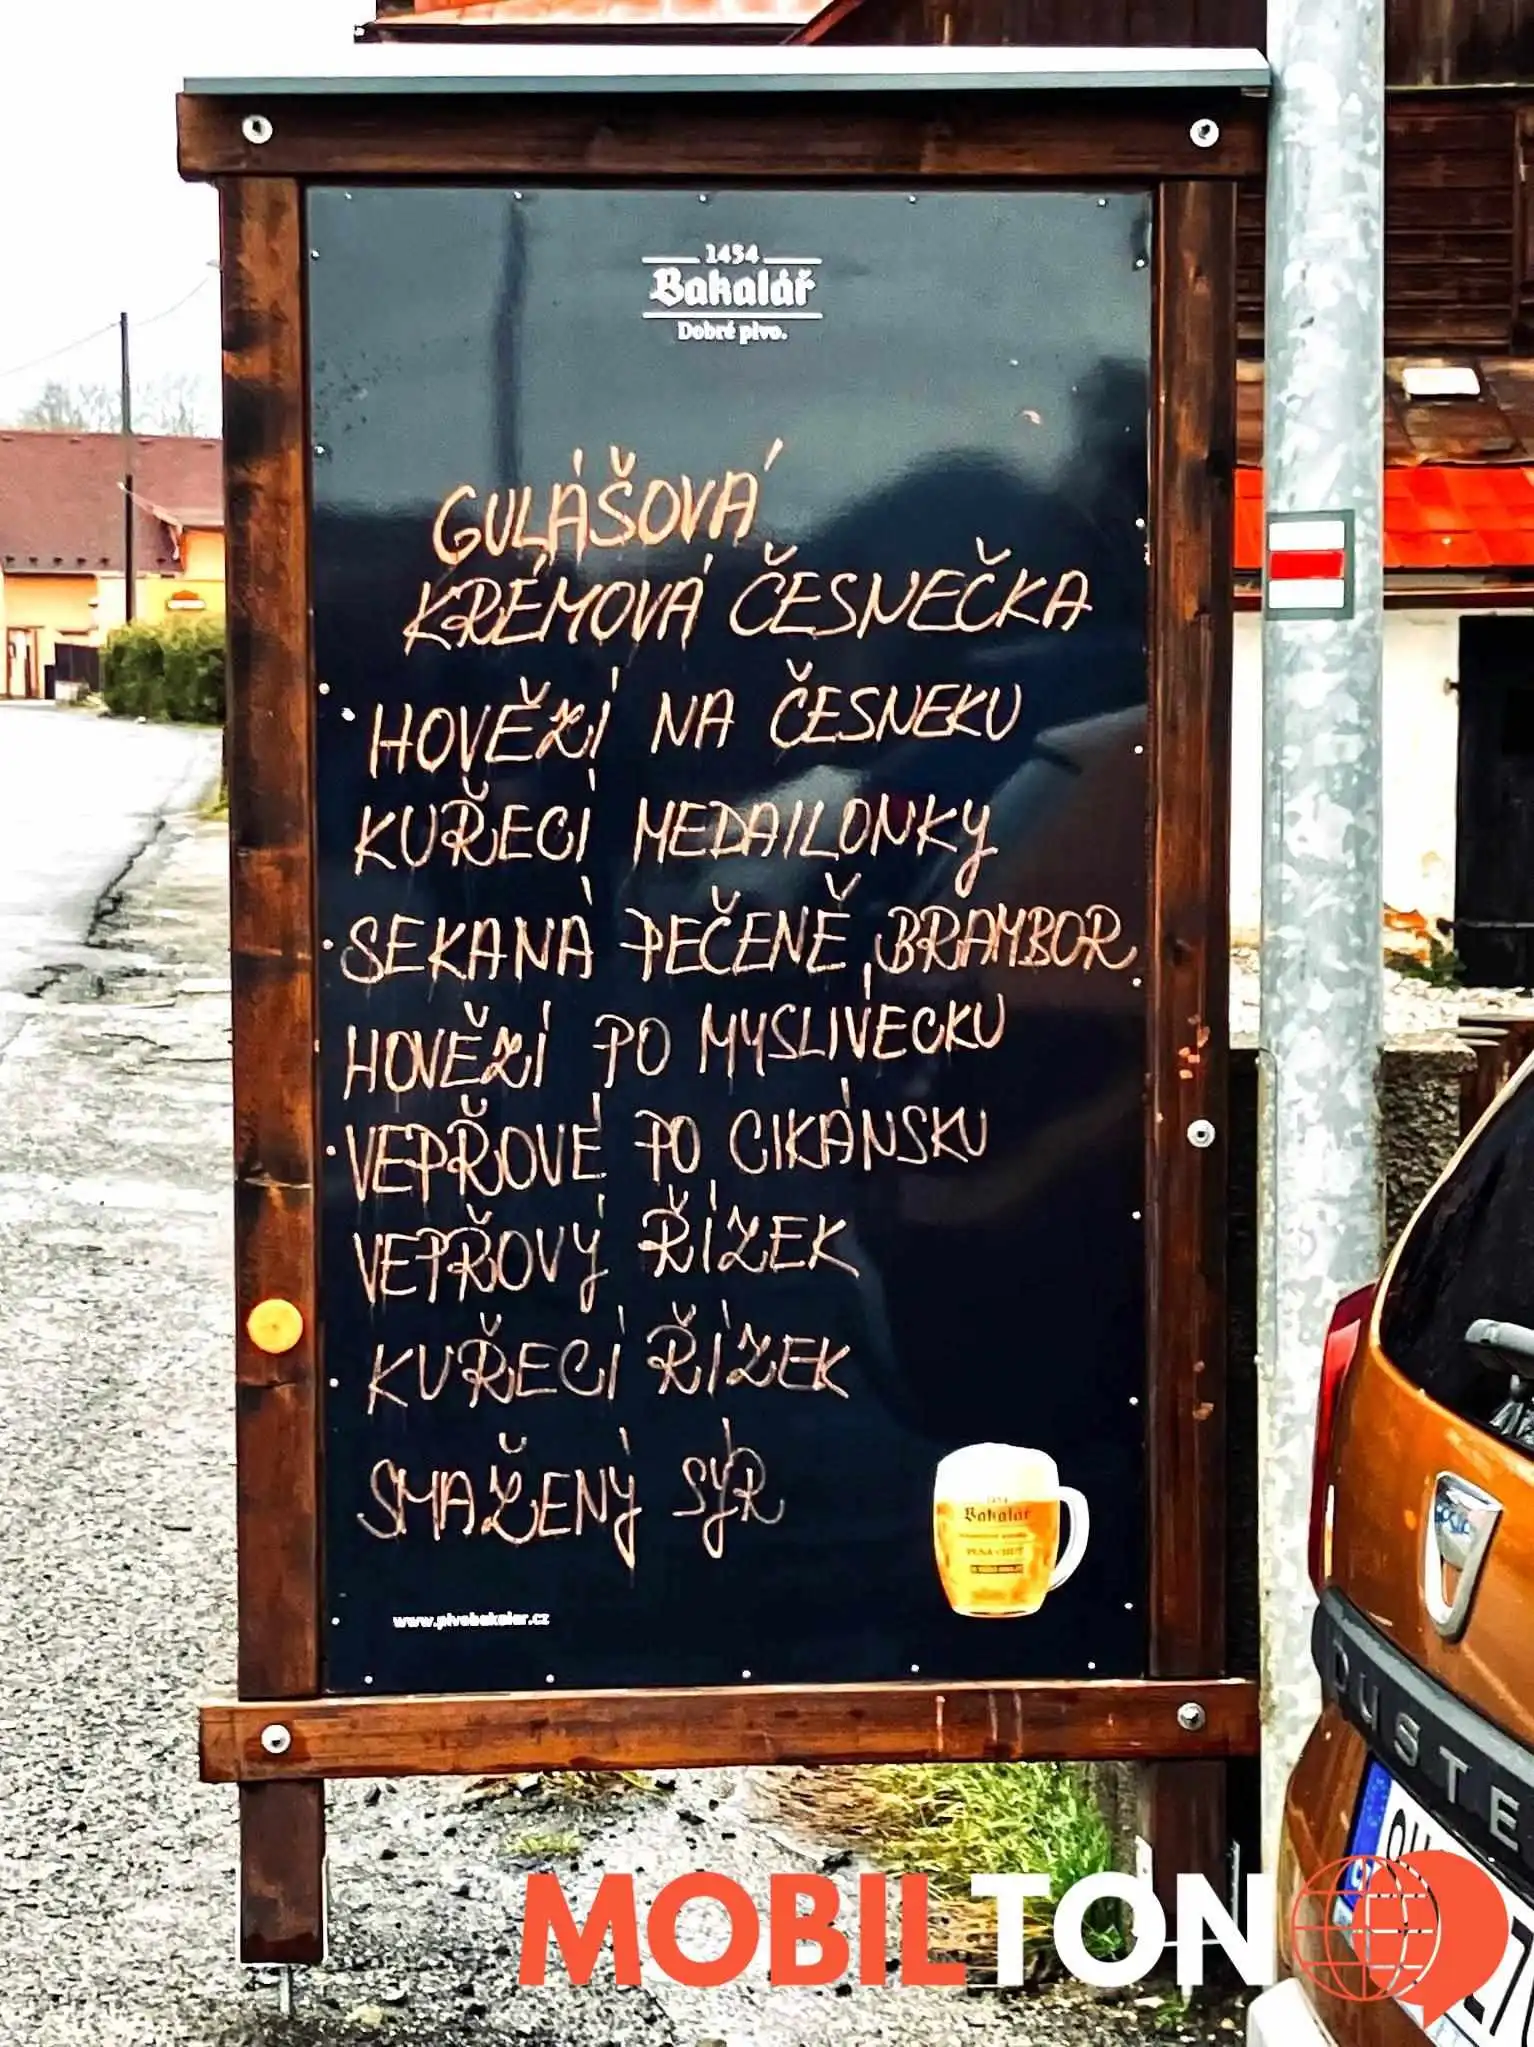 1454
Bakalář
Dobré pivo.
GULÁŠOVÁ
KRÉMOVÁ ČESNEČKA
HOVĚZÍ NA ČESNEKU
KUŘECÍ MEDAILONKY
SEKANÁ PEČENĚ, BRAMBOR
HOVĚZÍ PO MYSLIVECKU
VEPŘOVÉ PO CIKÁNSKU
VEPŘOVÝ ŘÍZEK
KUŘECÍ ŘÍZEK
SMAŽENÝ SÝR
1454
Bakalář
www.pivobakalar.cz
DUSTE
MOBILTON